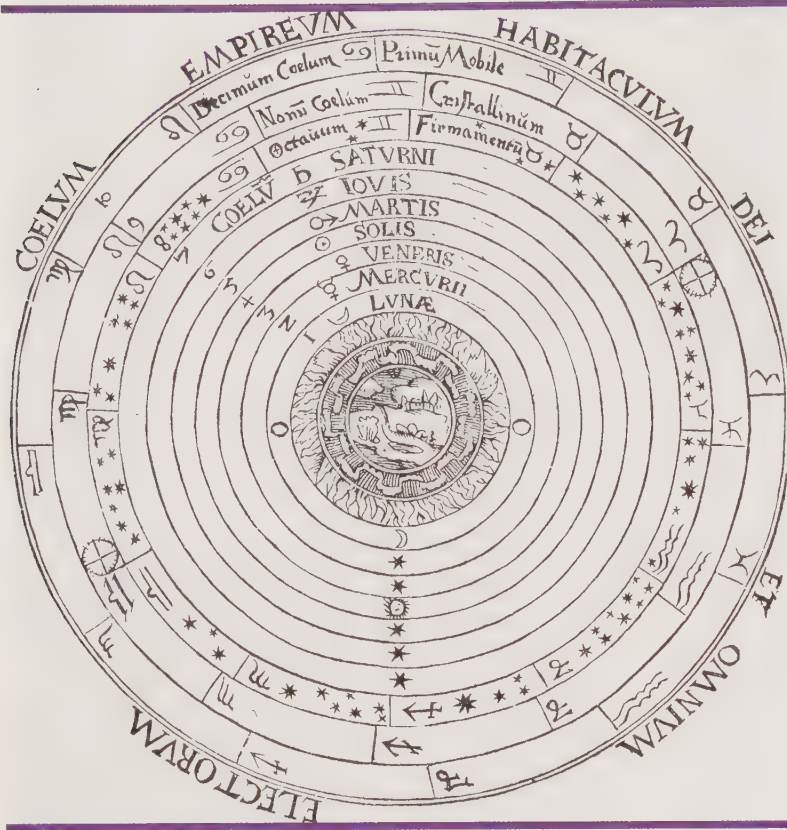 COELVM EMPIREVM HABITACVLVM DEI ET OMNIVM ELECTORVM
Decimūm Coelum ♋ Primū Mobile ♊
Nonū Coelūm ♊ Cristallinūm ♉
Octauum ♊ Firmamentū ♉
COELŪ ♄ SATVRNI
IOVIS
♂ MARTIS
☉ SOLIS
♀ VENERIS
☿ MERCVRII
☽ LVNÆ
10
9
8
7
6
5
4
3
2
1